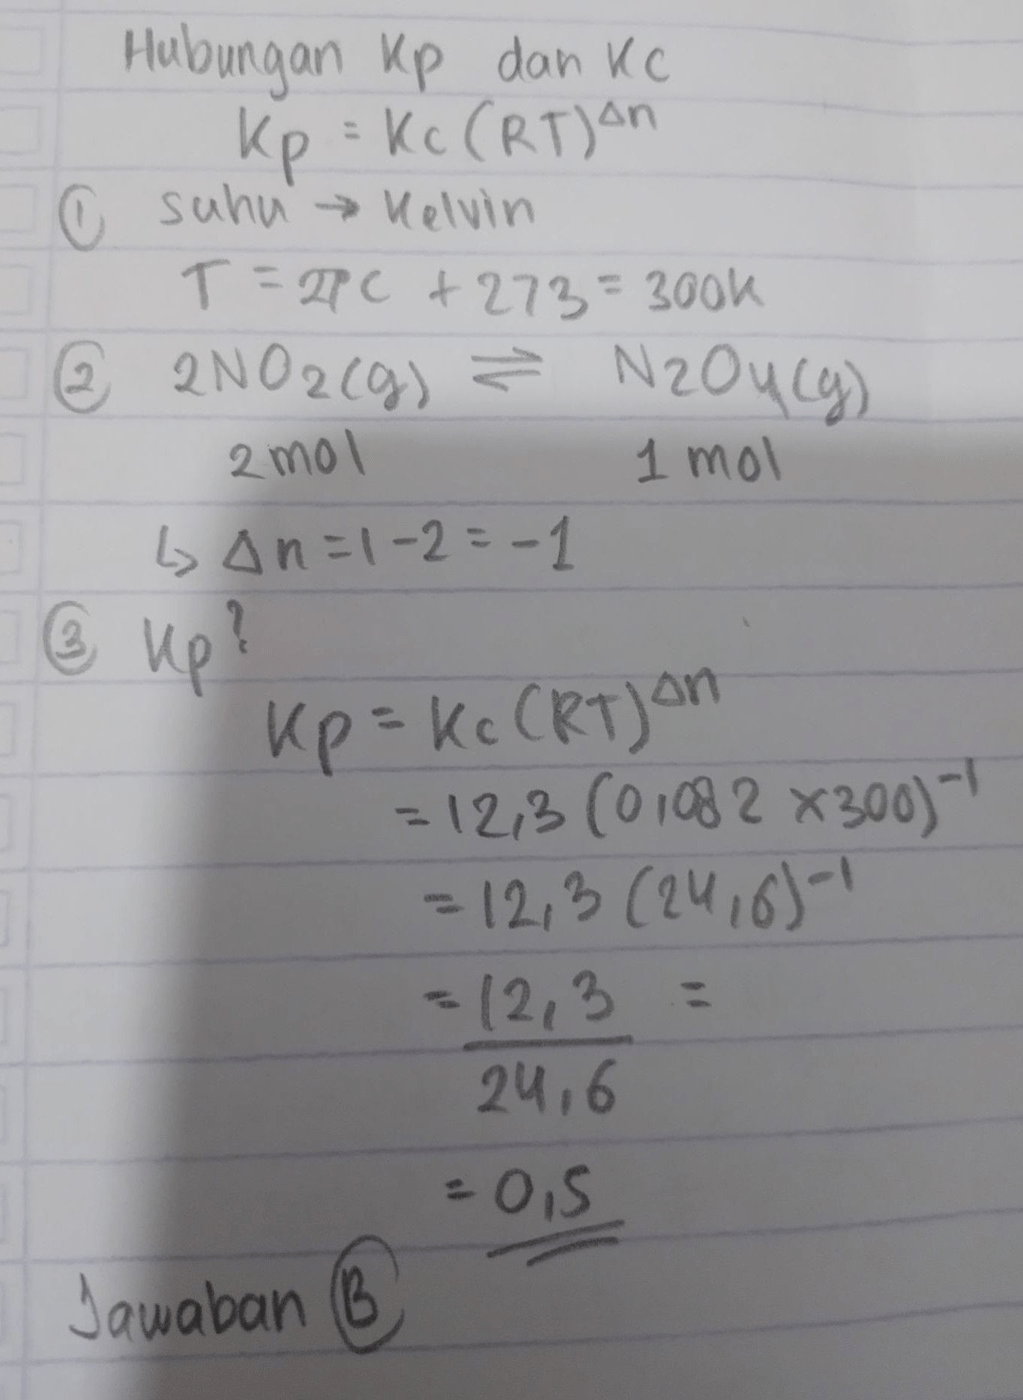 Hubungan Kp dan Kc
Kp = Kc (RT)^Δn
① suhu → Kelvin
T = 27°C + 273 = 300K
② 2NO2(g) ⇌ N2O4(g)
2 mol 1 mol
↳ Δn = 1 - 2 = -1
③ Kp?
Kp = Kc (RT)^Δn
= 12,3 (0,082 x 300)^-1
= 12,3 (24,6)^-1
= 12,3 =
24,6
= 0,5
Jawaban Ⓑ